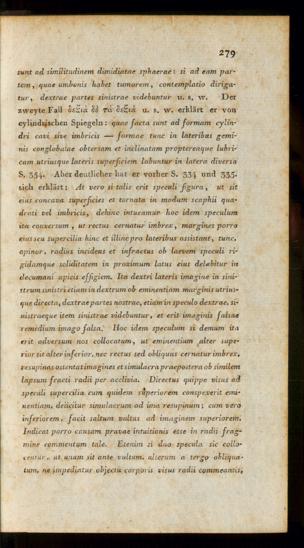 279
sunt ad similitudinem dimidiatae sphaerae: si ad eam par-
tem, quae umbonis habet tumorem, contemplatio diriga-
tur, dextrae partes sinistrae videbuntur u. s. w. Der
zweyte Fall δεξιὰ δὲ τὰ δεξιὰ u. s. w. erklärt er von
cylindrischen Spiegeln: quae facta sunt ad formam cylin-
dri cavi sive imbricis — formae tunc in lateribus gemi-
nis conglobatae obtersam et inclinatam propterenque lubri-
cam utriusque lateris superficiem labuntur in latera diversa
S. 334. Aber deutlicher hat er vorher S. 334 und 335.
sich erklärt: At vero si talis erit speculi figura, ut sit
eius concava superficies et tornata in modum scaphii qua-
drati vel imbricis, dehinc intueamur hoc idem speculum
ita conversum, ut rectus cernatur imbrex, margines porro
eius seu supercilia hinc et illinc pro lateribus assistant, tunc,
opinor, radius incidens et infractus ob laevem speculi ri-
gidamque soliditatem in proximum latus eius delabitur in
decumani apicis effigiem. Ita dextri lateris imagine in sini-
strum sinistri etiam in dextrum ob eminentiam marginis utrius-
que directa, dextrae partes nostrae, etiam in speculo dextrae, si-
nistraeque item sinistrae videbuntur, et erit imaginis falsae
remedium imago falsa. Hoc idem speculum si demum ita
erit adversum nos collocatum, ut eminentium alter supe-
rior sit alter inferior, nec rectus sed obliquus cernatur imbrex,
resupinas ostentat imagines et simulacra praepostera ob similem
lapsum fracti radii per acclivia. Directus quippe visus ad
speculi supercilia cum quidem superiorem conspexerit emi-
nentiam, deiicitur simulacrum ad ima resupinum; cum vero
inferiorem, facit saltum vultus ad imaginem superiorem.
Indicat porro causam pravae intuitionis esse in radii frag-
mine commentum tale. Etenim si duo specula sic collo-
centur, ut unum sit ante vultum, alterum a tergo obliqua-
tum, ne impediatur obiectu corporis visus radii commeantis,